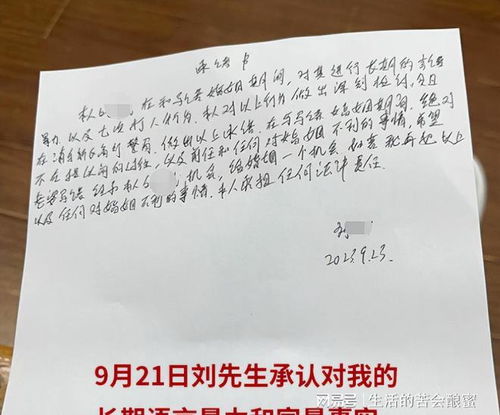 承诺书
本人 在和马 婚姻期间,对其进行长期的言语
暴力,以及七次打人行为。本人对以上行为做出深刻检讨,今日
在 派出所 警官,做出以上承诺。在与马 婚姻期间,绝对
不在提以前的过往,以及前任和任何对婚姻不利的事情,希望
老婆马 给本人 机会,给婚姻一个机会 如若我再犯以上
以及任何对婚姻不利的事情,本人承担任何法律责任。
刘
2023.9.23.
9月21日刘先生承认对我的
搜狐号@生活的苦会酿蜜
长期语言暴力和家暴事实